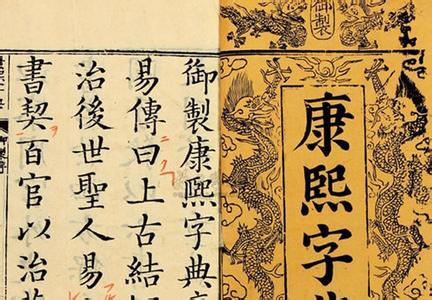 御製
康熙字典
御製康熙字典
易傳曰上古結
治後世聖人易
書契百官以治